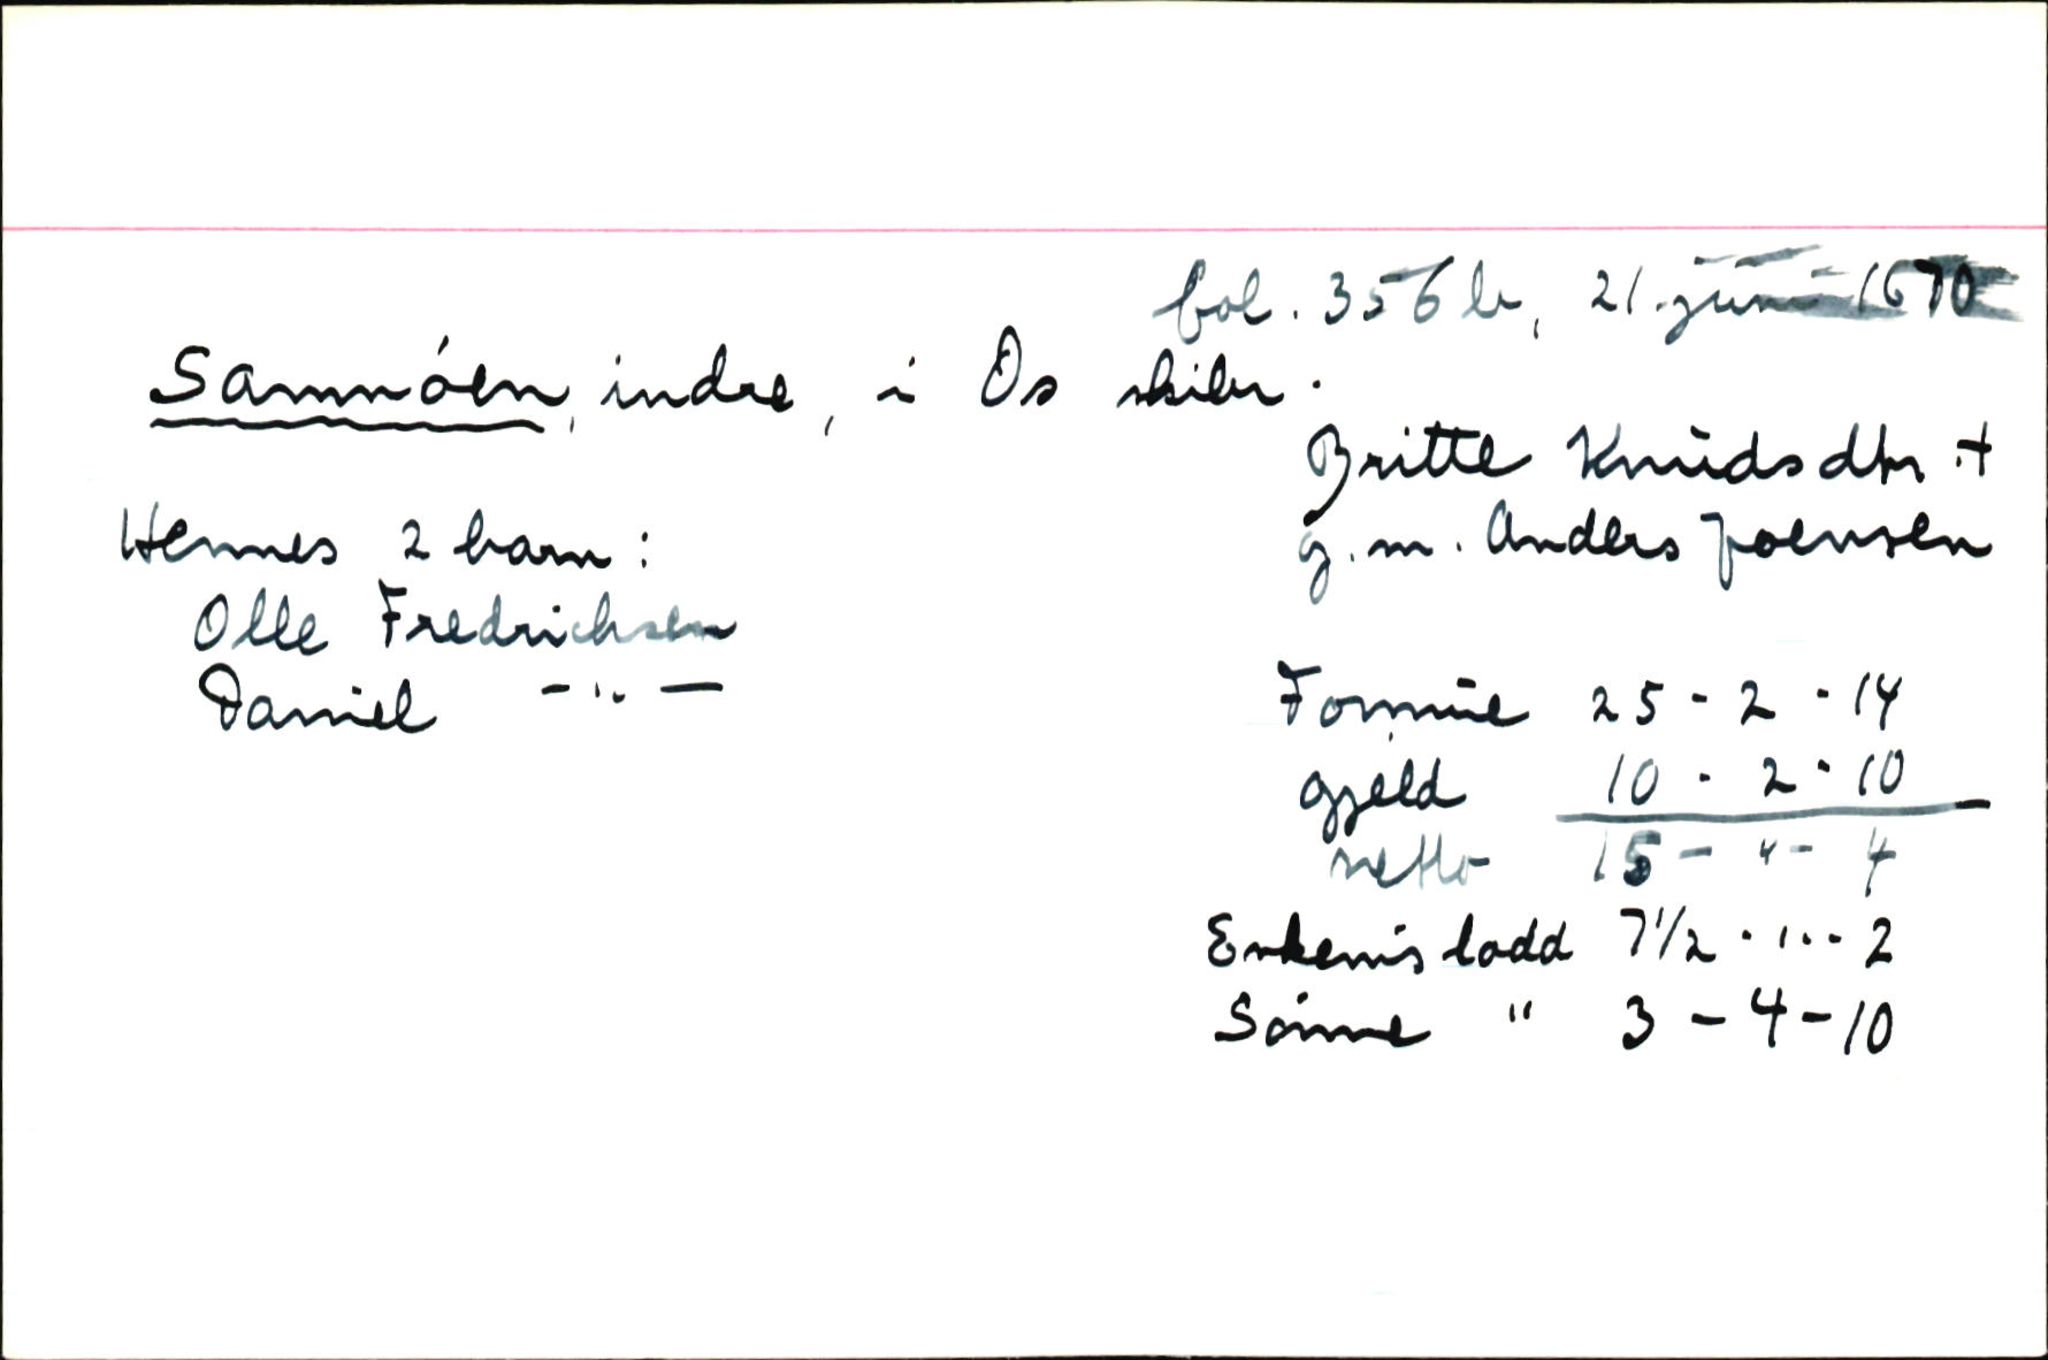 fol. 356 b, 21. juni 1670
Samnóen, indre, i Os skibr.
Britte Knudsdtr. +
g. m. Anders Joensen
Hennes 2 barn:
Olle Fredrichsen
Daniel - " -
Formue 25 - 2 - 14
gjeld 10 - 2 - 10
netto 15 - " - 4
Enkem's lodd 7 1/2 - " - 2
Sónne " 3 - 4 - 10